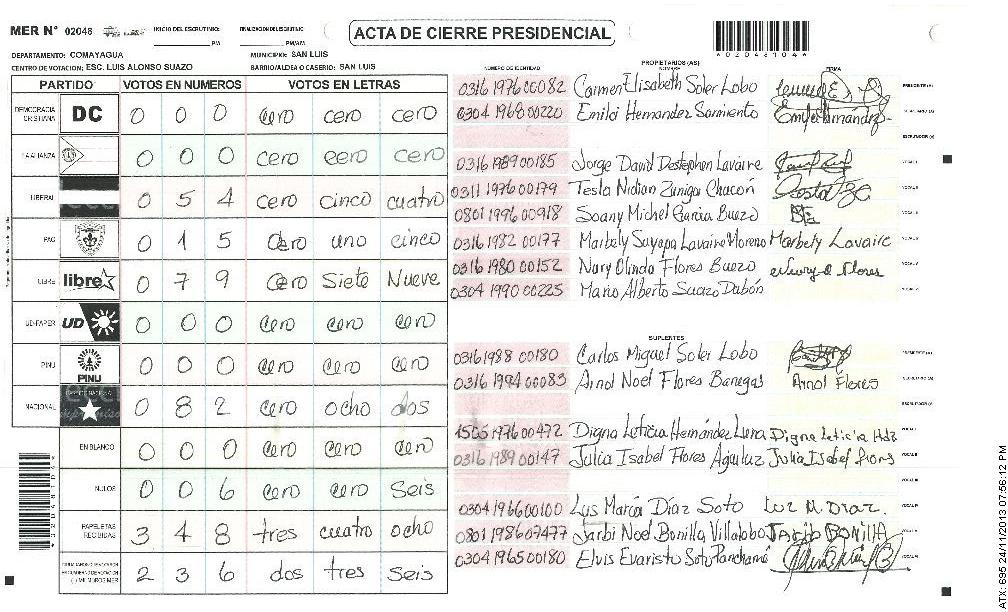 MER N° 02048
INICIO DEL ESCRUTINIO:
PM
FINALIZACION DEL ESCRUTINIO:
PM/AM
ACTA DE CIERRE PRESIDENCIAL
4020481044
DEPARTAMENTO: COMAYAGUA
MUNICIPIO: SAN LUIS
CENTRO DE VOTACION: ESC. LUIS ALONSO SUAZO
BARRIO/ALDEA O CASERIO: SAN LUIS
PARTIDO VOTOS EN NUMEROS VOTOS EN LETRAS
DEMOCRACIA CRISTIANA DC 0 0 0 cero cero cero
LA ALIANZA 0 0 0 cero cero cero
LIBERAL 0 5 4 cero cinco cuatro
PAC 0 1 5 cero uno cinco
LIBRE libre 0 7 9 cero Siete Nueve
UD-FAPER UD 0 0 0 cero cero cero
PINU PINU 0 0 0 cero cero cero
NACIONAL 0 8 2 cero ocho dos
EN BLANCO 0 0 0 cero cero cero
NULOS 0 0 6 cero cero Seis
PAPELETAS RECIBIDAS 3 4 8 tres cuatro ocho
2 3 6 dos tres Seis
PROPIETARIOS (AS)
NUMERO DE IDENTIDAD NOMBRE FIRMA
0316 1976 00082 Carmen Elisabeth Soler Lobo PRESIDENTE (A)
0304 1968 00220 Emilda Hernandez Sarmiento SECRETARIO (A)
ESCRUTADOR (A)
0316 1989 00185 Jorge David Destephen Lavaire VOCAL I
0311 1976 00179 Tesla Nidian Zuniga Chacón VOCAL II
0801 1996 00918 Soany Michel Garcia Buezo
0316 1982 00177 Marbely Suyapa Lavaire Moreno Marbely Lavaire
0316 1980 00152 Nury Olinda Flores Buezo Nury O Flores
0304 1990 00225 Mario Alberto Suazo Dubón
SUPLENTES
0316 1988 00180 Carlos Miguel Soler Lobo PRESIDENTE (A)
0316 1994 00083 Arnol Noel Flores Banegas Arnol Flores SECRETARIO (A)
ESCRUTADOR (A)
1976 00472 Digna Leticia Hernández Digna Leticia Hdz VOCAL I
0316 1989 00147 Julia Isabel Flores Aguiluz Julia Isabel VOCAL II
0304 1966 00100 Luis Marcia Díaz Soto Luz M. Diaz.
0801 1986 07477 Jarbi Noel Bonilla Villalobo Jarbi BONILLA
0304 1965 00180 Elvis Evaristo Soto
ATX: 695 24/11/2013 07:56:12 PM